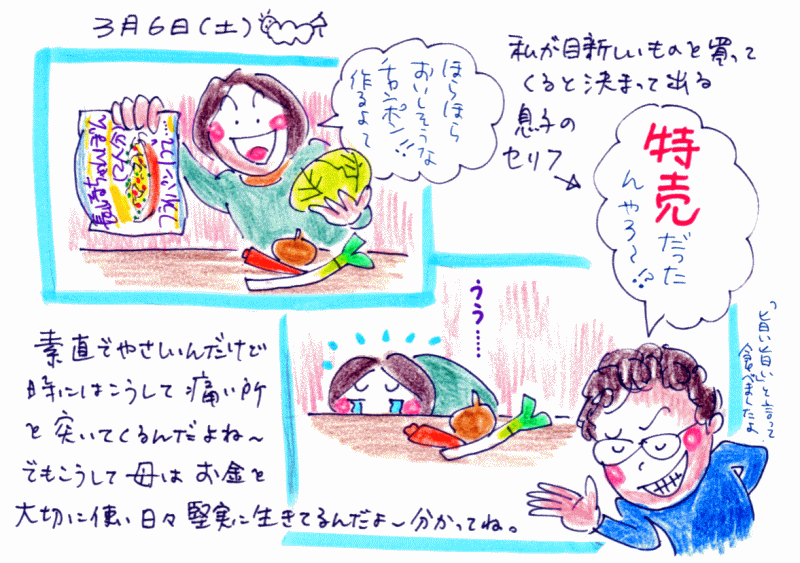 3月6日(土)
ほらほら
おいしそうな
チャンポン!!
作るよて
私が目新しいものと買って
くると決まって出る
息子の
セリフ
特売
だった
んやろ〜!?
長崎ちゃんぽん
うう……
「旨い旨い」と言って
食べましたよ
素直でやさしいんだけど
時にはこうして痛い所
を突いてくるんだよね〜
でもこうして母はお金を
大切に使い日々堅実に生きてるんだよ〜分かってね。